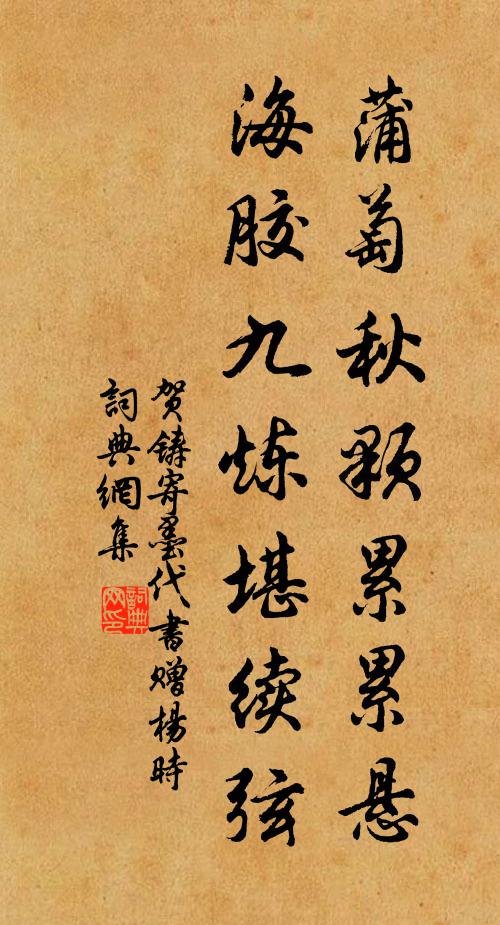 蒲萄秋颗累累悬
海胶九炼堪续弦
贺鑄寄墨代書赠楊時
詞典網集
詞典网印